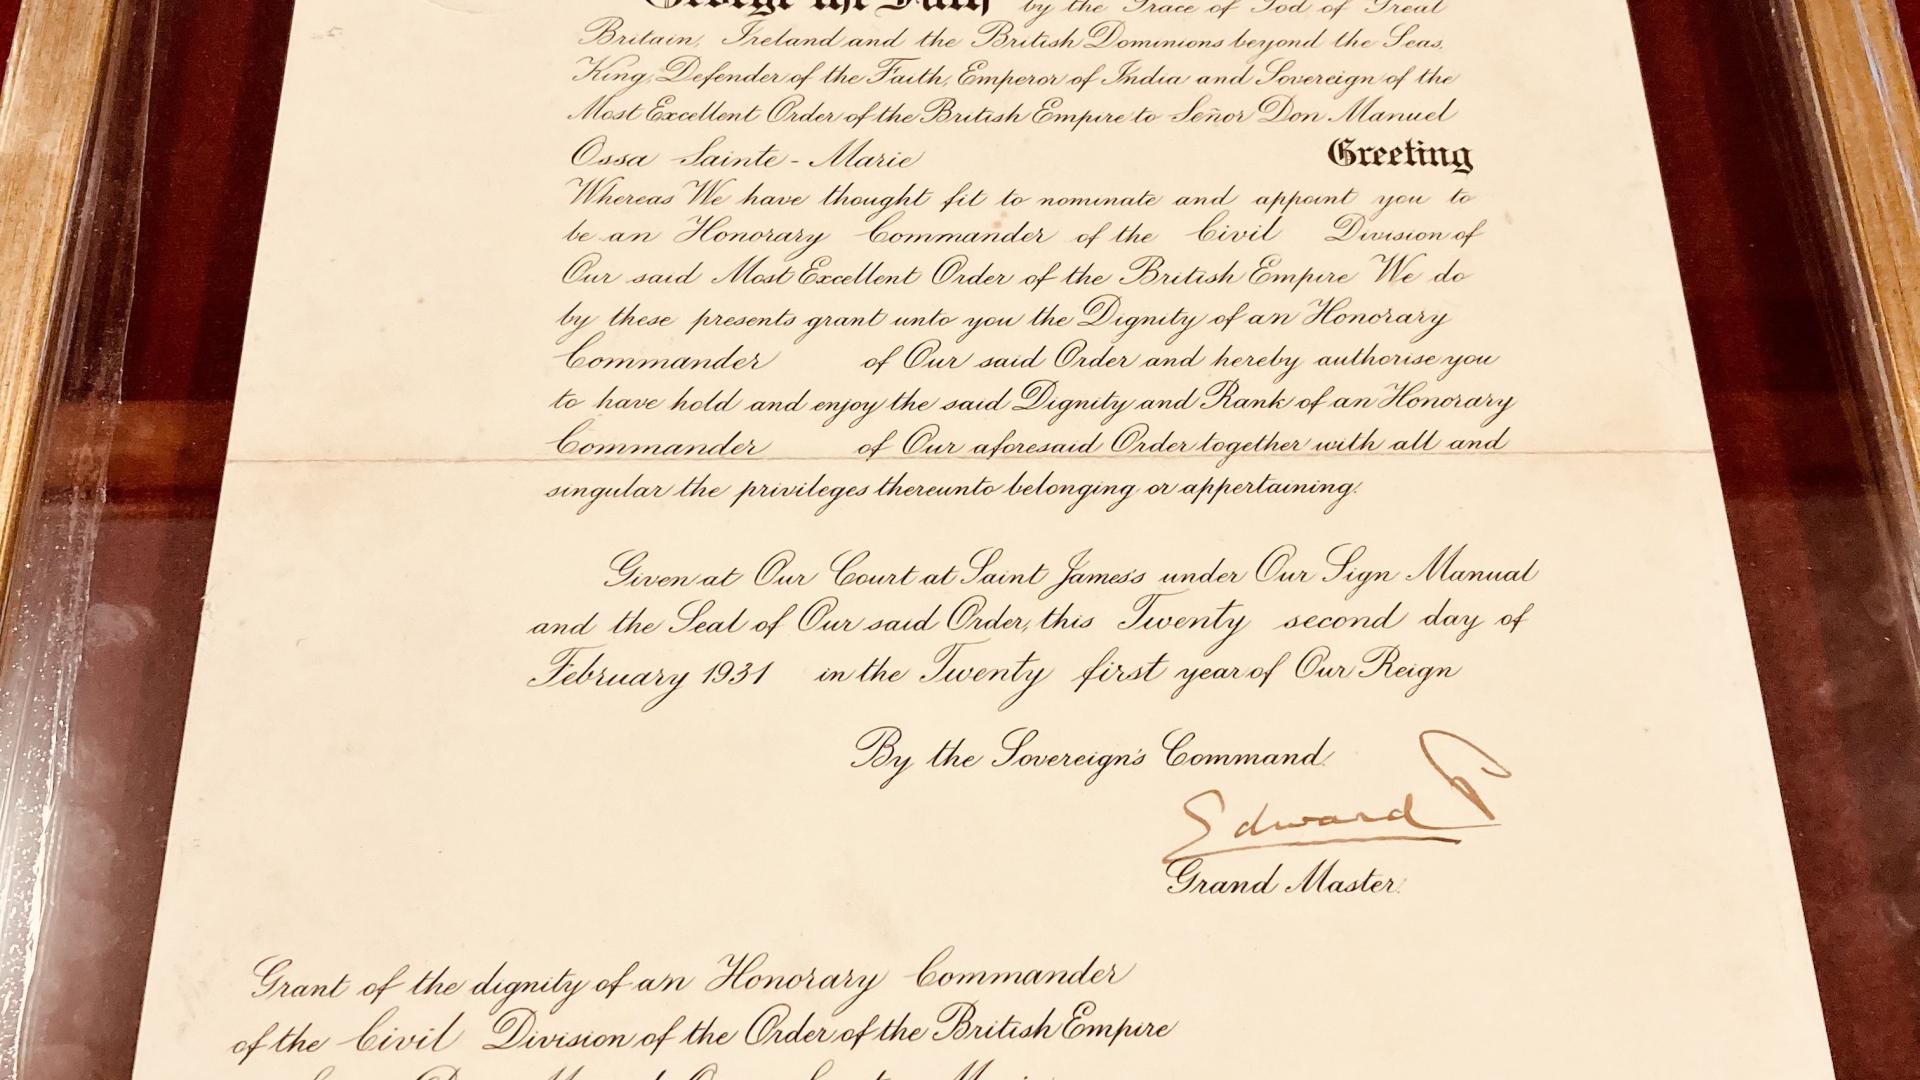 George the Fifth by the Grace of God of Great
Britain, Ireland and the British Dominions beyond the Seas,
King, Defender of the Faith, Emperor of India and Sovereign of the
Most Excellent Order of the British Empire to Señor Don Manuel
Ossa Sainte-Marie Greeting
Whereas We have thought fit to nominate and appoint you to
be an Honorary Commander of the Civil Division of
Our said Most Excellent Order of the British Empire We do
by these presents grant unto you the Dignity of an Honorary
Commander of Our said Order and hereby authorise you
to have hold and enjoy the said Dignity and Rank of an Honorary
Commander of Our aforesaid Order together with all and
singular the privileges thereunto belonging or appertaining.
Given at Our Court at Saint James's under Our Sign Manual
and the Seal of Our said Order, this Twenty second day of
February 1931 in the Twenty first year of Our Reign
By the Sovereign's Command.
Edward P
Grand Master.
Grant of the dignity of an Honorary Commander
of the Civil Division of the Order of the British Empire